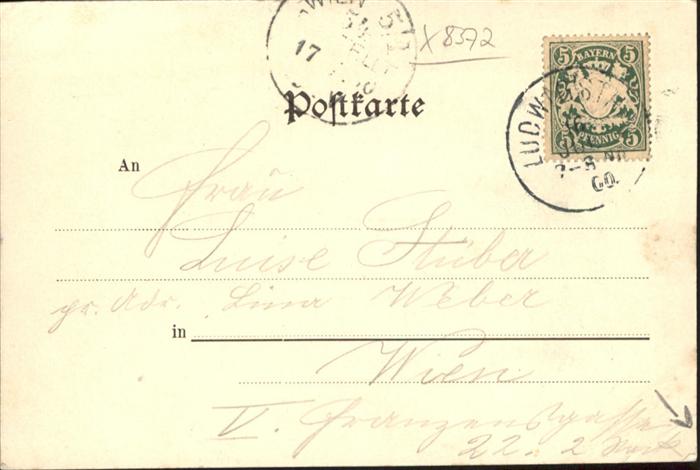 WIEN 5/1
17
X 8372
5 BAYERN 5
5 PFENNIG 5
LUDW
7-8 NM
00.
Postkarte
An
Frau
Luise Stüber
pr. Adr. Lina Weber
in
Wien
V. Franzensgasse
22. 2. Stock